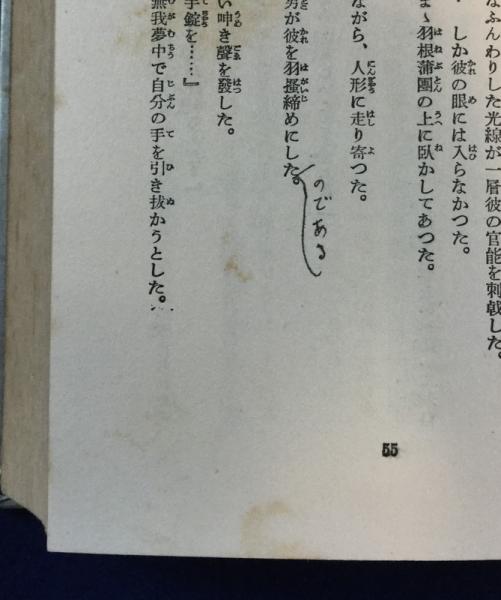 なふんわりした光線が一層彼の官能を刺戟した。
しか彼の眼には入らなかつた。
まゝ羽根蒲團の上に臥かしてあつた。
ながら、人形に走り寄つた。
男が彼を羽搔締めにした。
のである
い呻き聲を發した。
手錠を……』
無我夢中で自分の手を引き拔かうとした。
55